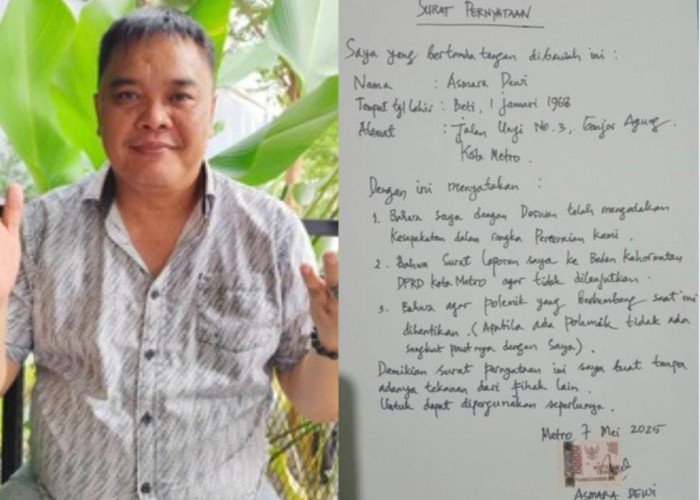 SURAT PERNYATAAN
Saya yang bertanda tangan dibawah ini :
Nama : Asmara Dewi
Tempat tgl lahir : Beti, 1 Januari 1968
Alamat : Jalan Unyi No. 3, Ganjar Agung
Kota Metro.
Dengan ini menyatakan :
1. Bahwa saya dengan Daswan telah mengadakan
Kesepakatan dalam rangka Perceraian kami.
2. Bahwa Surat laporan saya ke Badan Kehormatan
DPRD Kota Metro agar tidak dilanjutkan.
3. Bahwa agar polemik yang berkembang saat ini
dihentikan. (Apabila ada polemik tidak ada
sangkut pautnya dengan saya).
Demikian surat pernyataan ini saya buat tanpa
adanya tekanan dari pihak lain.
Untuk dapat dipergunakan seperlunya.
Metro, 7 Mei 2025
ASMARA DEWI